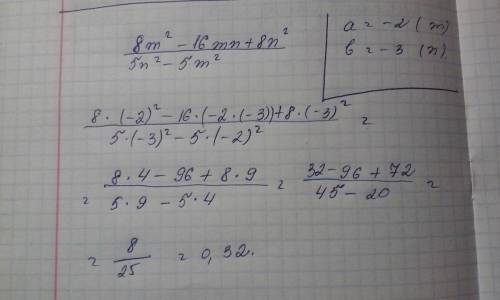 (8m² - 16mn + 8n²)/(5n² - 5m²)
a = -2 (m)
b = -3 (n)
(8 · (-2)² - 16 · (-2 · (-3)) + 8 · (-3)²)/(5 · (-3)² - 5 · (-2)²) =
= (8 · 4 - 96 + 8 · 9)/(5 · 9 - 5 · 4) = (32 - 96 + 72)/(45 - 20) =
= 8/25 = 0,32.